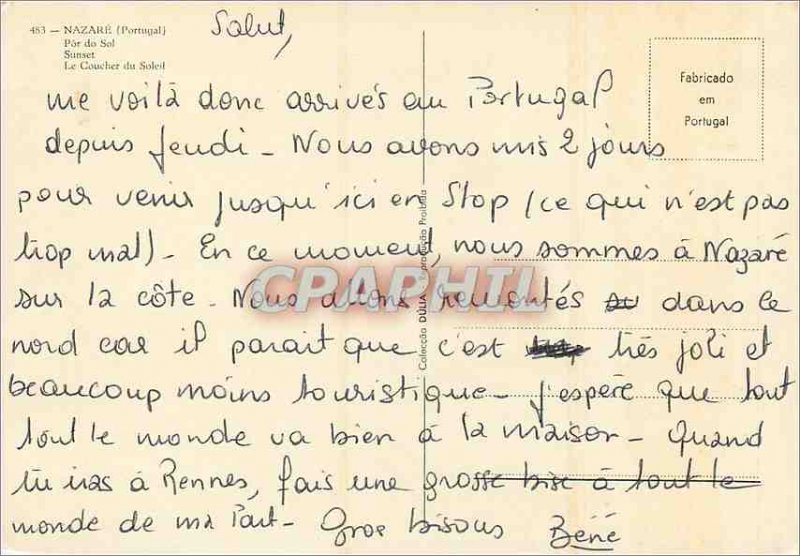 483 — NAZARÉ (Portugal)
Pôr do Sol
Sunset
Le Coucher du Soleil
Fabricado
em
Portugal
Colecção DÚLIA Reprodução Proibida
CPAPHIL
Salut,
me voilà donc arrivés au Portugal
depuis jeudi - Nous avons mis 2 jours
pour venir jusqu'ici en Stop (ce qui n'est pas
trop mal) - En ce moment, nous sommes à Nazaré
sur la côte - Nous allons remontés dans le
nord car il parait que c'est très joli et
beaucoup moins touristique - j'espère que tout
tout le monde va bien à la maison - Quand
tu iras à Rennes, fais une grosse bise à tout le
monde de ma Part - Gros bisous Béné